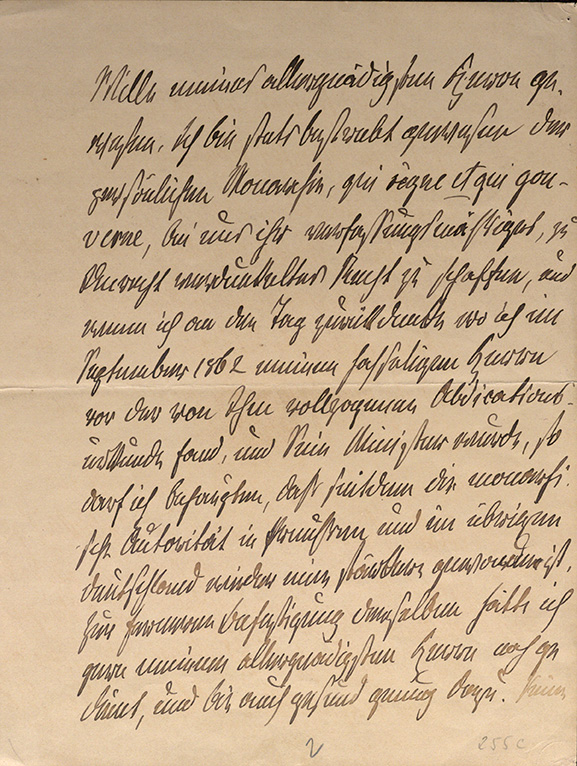 Wille meines allergnädigsten Herrn ge-
wesen, ich bin stets bestrebt gewesen der
persönlichen Monarchie, qui règne et qui gou-
verne, bei uns ihr verfassungsmäßiges, zu
Unrecht verdunkeltes Recht zu schaffen, und
wenn ich an den Tag zurückdenke wo ich im
September 1862 meinen hochseligen Herrn
vor der von Ihm vollzogenen Abdications-
urkunde fand, und Sein Minister wurde, so
darf ich behaupten, daß seitdem die monarchi-
sche Autorität in Preußen und im übrigen
Deutschland wieder eine stärkere geworden ist.
Zur ferneren Befestigung derselben hätte ich
gern meinem allergnädigsten Herrn noch ge
dient, und bin auch gesund genug dazu. Seine
2
255 c